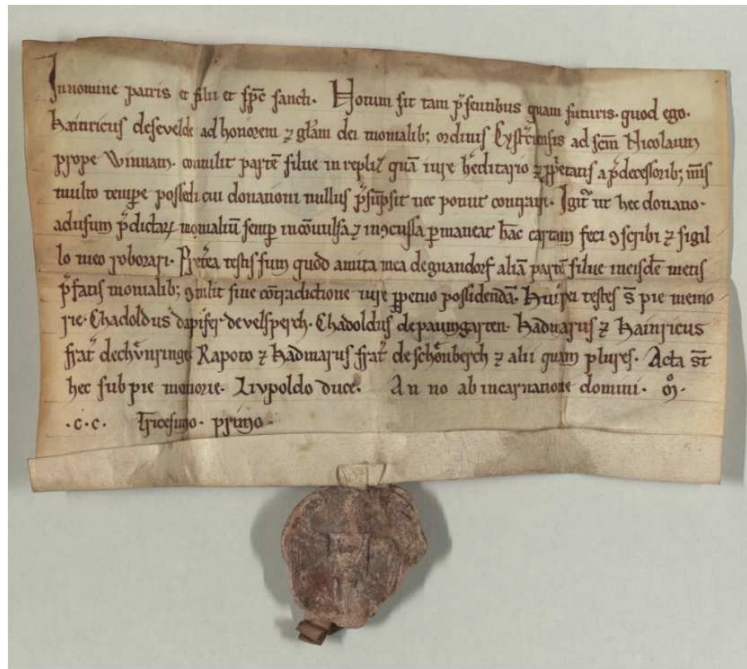 In nomine patris et filii et spc̄ sancti. Notum sit tam p̄sentibus quam futuris. quod ego.
Hainricus de sevelde ad honorem ⁊ glām dei monialib; ordinis Cyst̄ciensis ad scm̄ Nicolaum
prope Winnam. contulit partē silve in repliz quā iure h̄editario ⁊ ꝓpetatis a p̄decessorib; meis
multo tempe possedi cui donationi nullus p̄sūpsit nec potuit contrairi. Igit̄ ut hec donatio.
ad usum p̄dictaꝝ monialiū semp incōvulsa ⁊ inɔcussa ꝑmaneat hāc cartam feci ɔscribi ⁊ sigil
lo meo roborari. Pret̄ea testis sum quod amita mea de gnandorf aliā partē silve in eisdē metis
p̄fatis monialib; ɔtulit sine cōtradictione iure ꝑpetuo possidendā. Huiꝰ rei testes s̄t pie memo
rie. Chadoldus dapifer de velsperch. Chadoldus de paumgarten. Hadmarus ⁊ Hainricus
frat̄s de chv̊nringe Rapoto ⁊ Hadmarus frat̄s de schōnberch ⁊ alii quam plures. Acta s̄t
hec sub pie memorie. Livpoldo duce. Anno ab incarnatione domini. ꝳ.
.c.c. Tricesimo. primo.